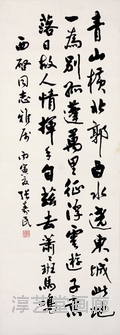 青山橫北郭白水遶東城此地
一為別孤蓬萬里征浮雲遊子意
落日故人情揮手自茲去蕭〻班馬鳴
同志雅屬 丙寅
淳艺堂画廊